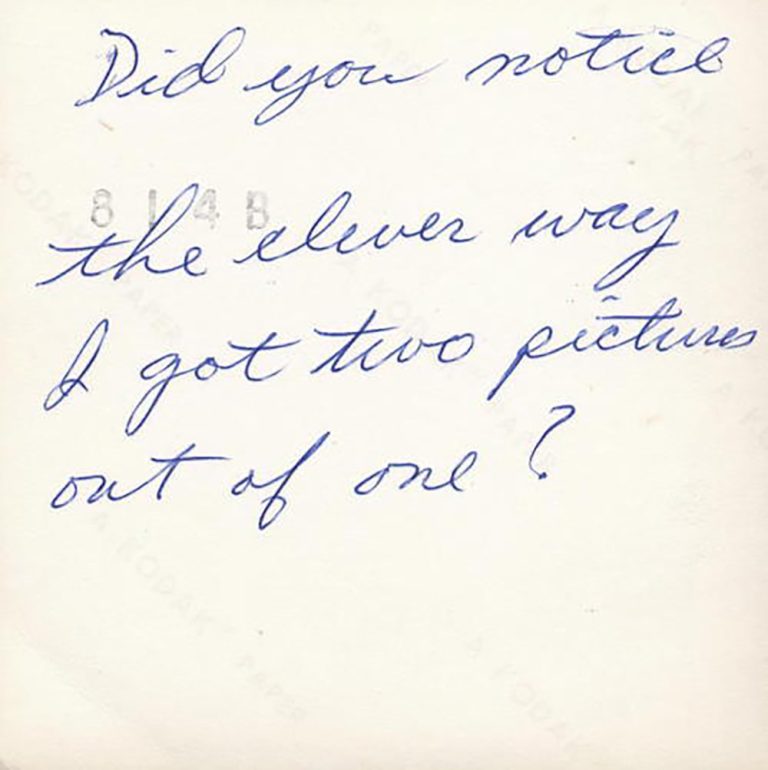 Did you notice
814B
the clever way
I got two pictures
out of one?
A KODAK PAPER
A KODAK PAPER